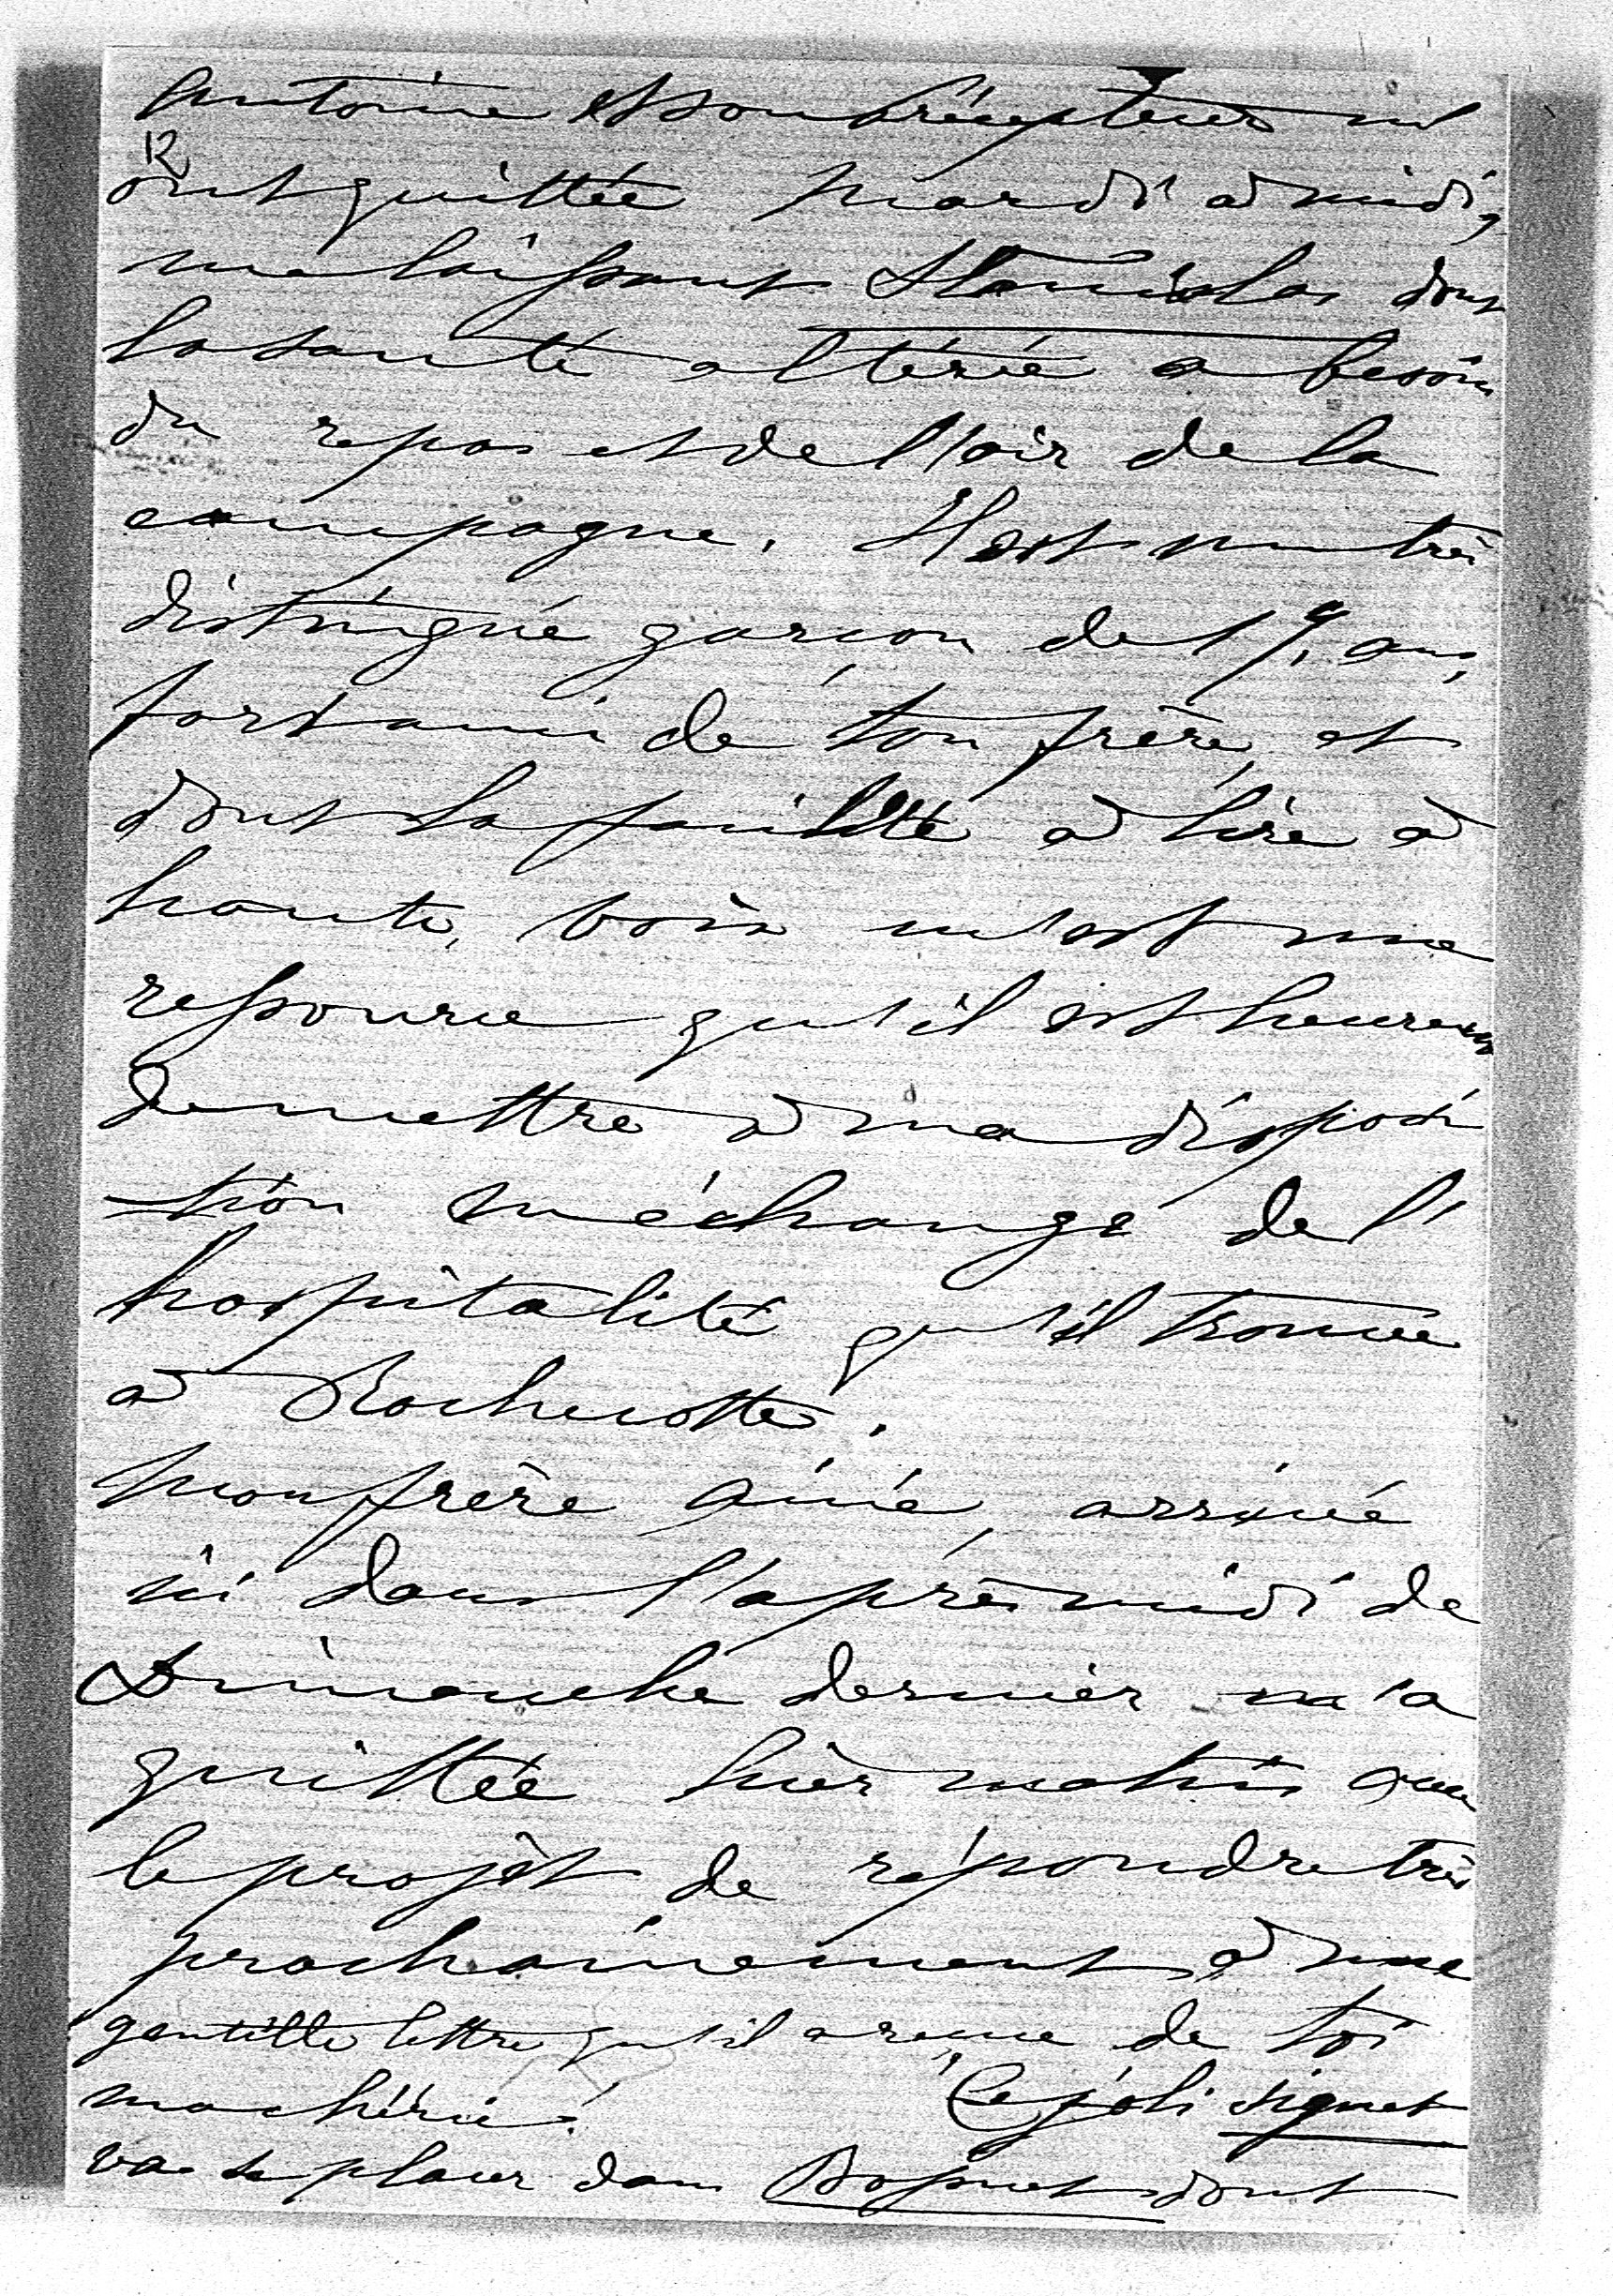 Antoine et son précepteur m'
12
ont quittée mardi à midi,
me laissant Stanislas dont
la santé altérée a besoin
du repos et de l'air de la
campagne. Il est un très
distingué garçon de 19 ans,
fort ami de ton frère, et
dont la facilité à lire à
haute voix m'est une
ressource qu'il est heureux
de mettre à ma disposi
tion en échange de l'
hospitalité qu'il trouve
à Rochecotte.
Mon frère ainé, arrivé
ici dans l'après midi de
Dimanche dernier m'a
quittée hier matin avec
le projèt de répondre très
prochainement à une
gentille lettre qu'il a reçue de toi
ma chérie. Ce joli signet
va se placer dans Bossuet dont